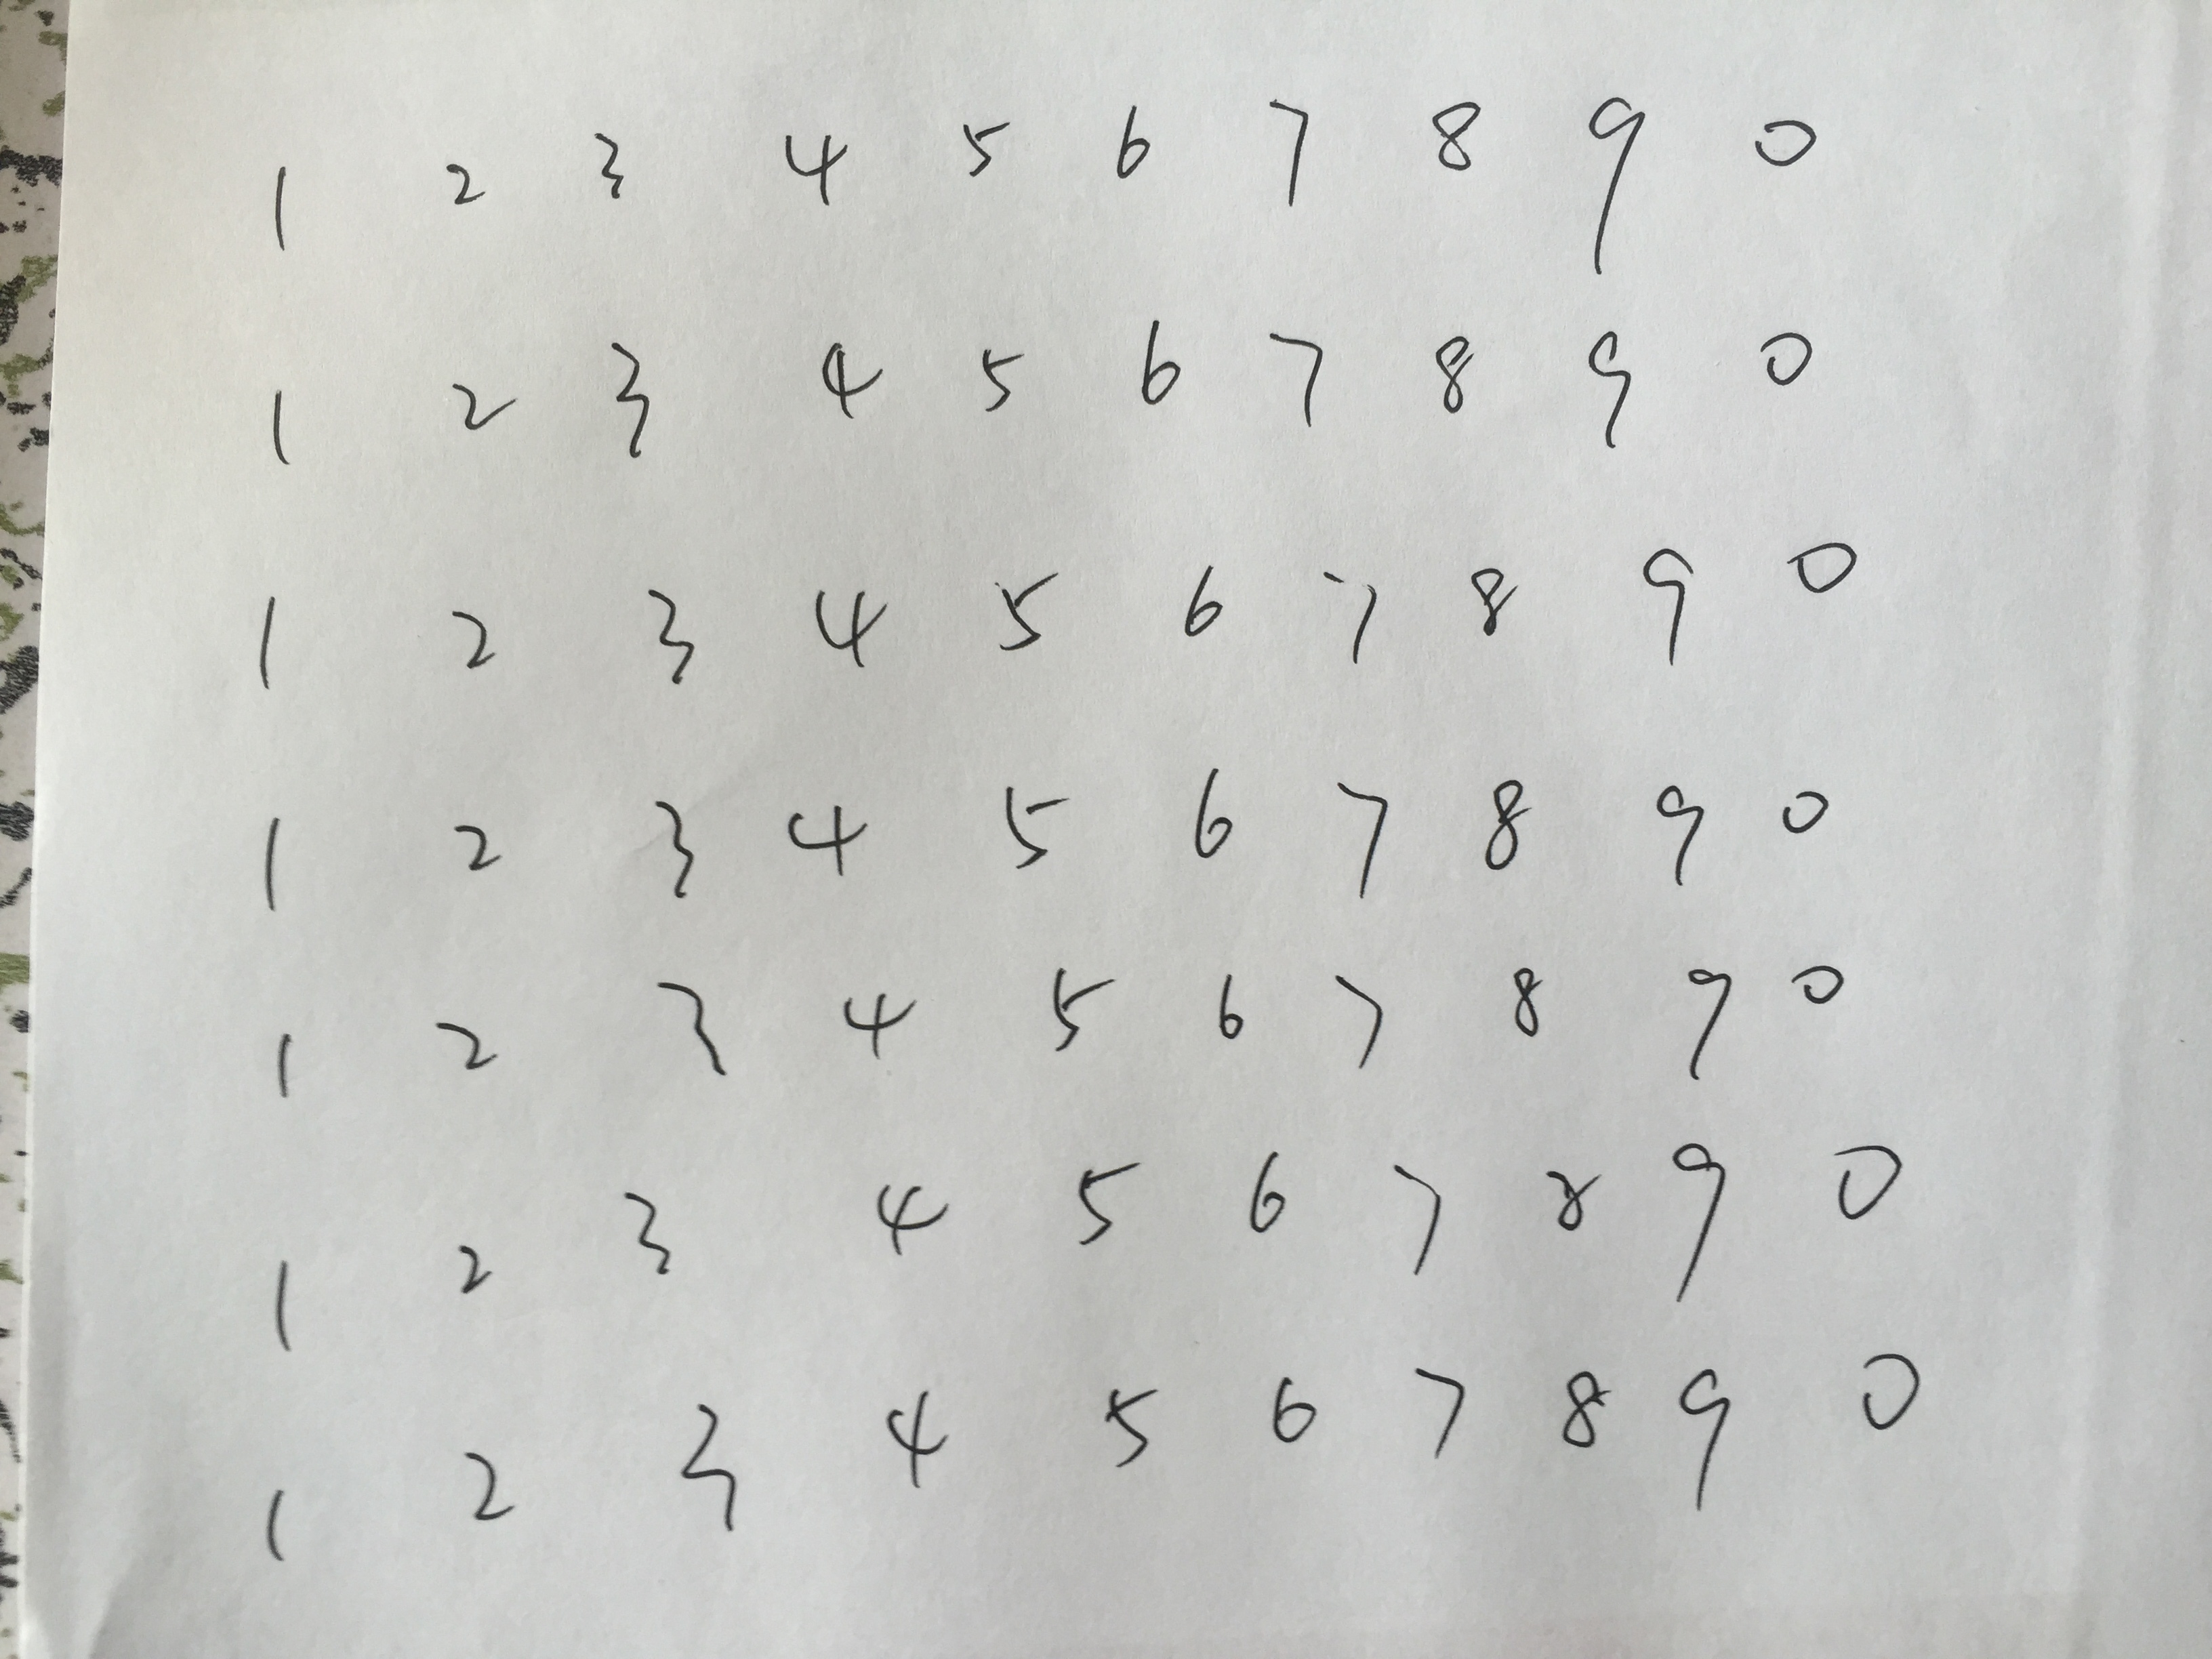 1 2 3 4 5 6 7 8 9 0
1 2 3 4 5 6 7 8 9 0
1 2 3 4 5 6 7 8 9 0
1 2 3 4 5 6 7 8 9 0
1 2 3 4 5 6 7 8 9 0
1 2 3 4 5 6 7 8 9 0
1 2 3 4 5 6 7 8 9 0